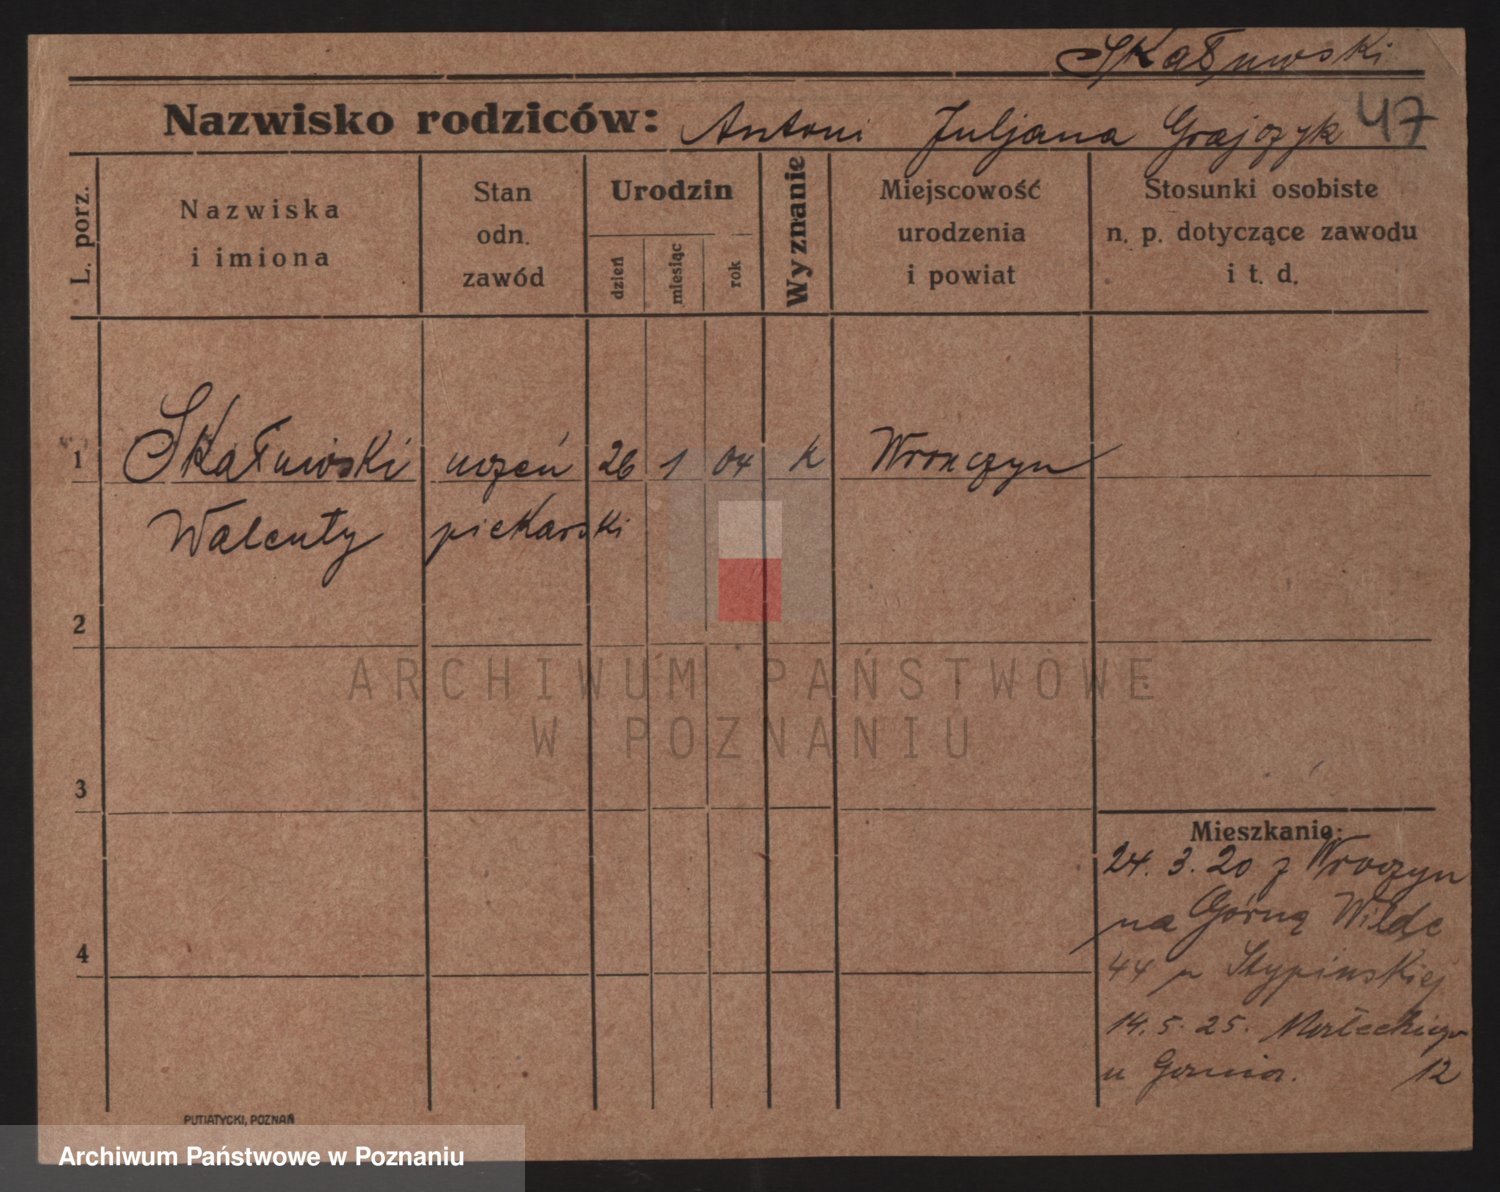 Skałuwski
Nazwisko rodziców: Antoni Juljana Grajczyk 47
L. porz.
Nazwiska
i imiona
Stan
odn.
zawód
Urodzin
dzień
miesiąc
rok
Wyznanie
Miejscowość
urodzenia
i powiat
Stosunki osobiste
n. p. dotyczące zawodu
i t. d.
1 Skałuwski uczeń 26 1 04 k Wronczyn
Walenty piekarski
2
3
4
Mieszkanie:
24. 3. 20 z Wroczyn
na Górną Wildę
44 u Stypińskiej
14. 5. 25.
u 12
PUTIATYCKI, POZNAŃ
ARCHIWUM PAŃSTWOWE
W POZNANIU
Archiwum Państwowe w Poznaniu